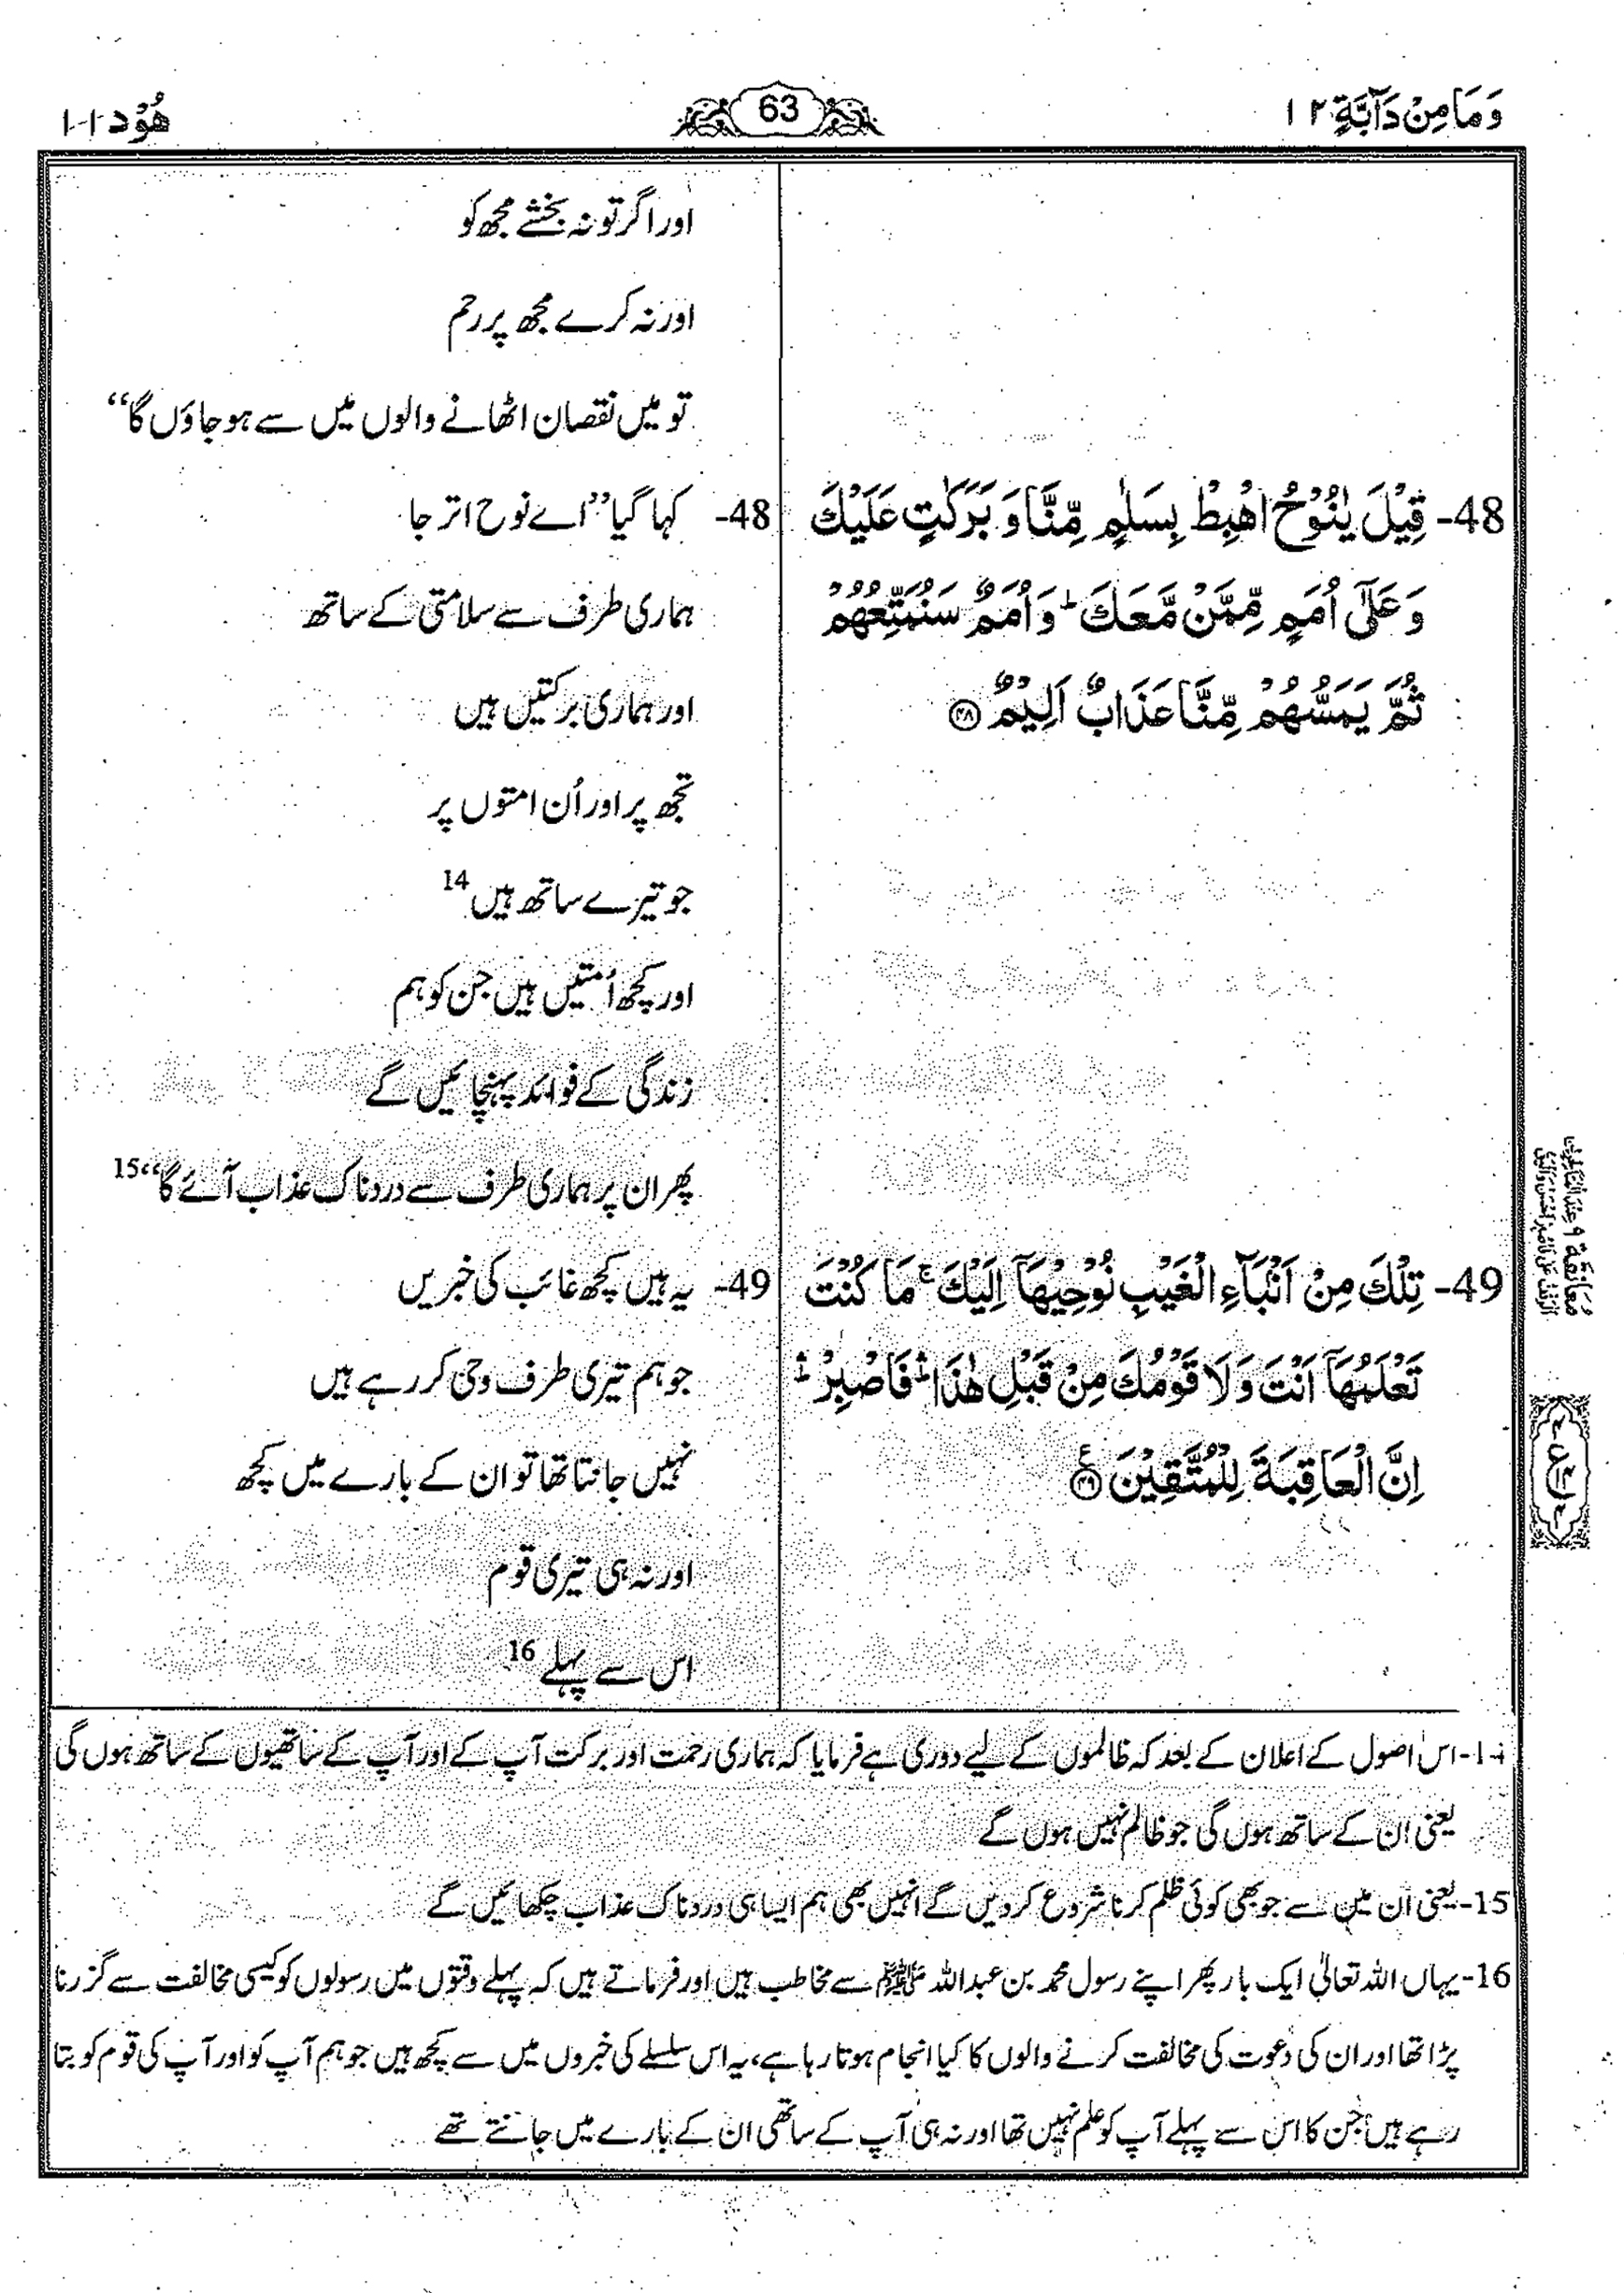 وَمَا مِنْ دَآبَّةٍ ۱۲
63
هُوْد ۱۱
اور اگر تو نہ بخشے مجھ کو
اور نہ کرے مجھ پر رحم
تو میں نقصان اٹھانے والوں میں سے ہو جاؤں گا‘‘
48- قِيْلَ يٰنُوْحُ اهْبِطْ بِسَلٰمٍ مِّنَّا وَ بَرَكٰتٍ عَلَيْكَ
وَ عَلٰٓى اُمَمٍ مِّمَّنْ مَّعَكَ ؕ وَ اُمَمٌ سَنُمَتِّعُهُمْ
ثُمَّ يَمَسُّهُمْ مِّنَّا عَذَابٌ اَلِيْمٌ ۴۸
48- کہا گیا ’’اے نوح اتر جا
ہماری طرف سے سلامتی کے ساتھ
اور ہماری برکتیں ہیں
تجھ پر اور اُن امتوں پر
جو تیرے ساتھ ہیں 14
اور کچھ اُمتیں ہیں جن کو ہم
زندگی کے فوائد پہنچائیں گے
پھر ان پر ہماری طرف سے دردناک عذاب آئے گا‘‘15
49- تِلْكَ مِنْ اَنْۢبَآءِ الْغَيْبِ نُوْحِيْهَآ اِلَيْكَ ۚ مَا كُنْتَ
تَعْلَمُهَآ اَنْتَ وَ لَا قَوْمُكَ مِنْ قَبْلِ هٰذَا ۛؕ فَاصْبِرْ ۛؕ
اِنَّ الْعَاقِبَةَ لِلْمُتَّقِيْنَ ۴۹ ع
49- یہ ہیں کچھ غائب کی خبریں
جو ہم تیری طرف وحی کر رہے ہیں
نہیں جانتا تھا تو ان کے بارے میں کچھ
اور نہ ہی تیری قوم
اس سے پہلے 16
14- اس اصول کے اعلان کے بعد کہ ظالموں کے لیے دوری ہے فرمایا کہ ہماری رحمت اور برکت آپ کے اور آپ کے ساتھیوں کے ساتھ ہوں گی
یعنی ان کے ساتھ ہوں گی جو ظالم نہیں ہوں گے
15- یعنی ان میں سے جو بھی کوئی ظلم کرنا شروع کردیں گے انہیں بھی ہم ایسا ہی دردناک عذاب چکھائیں گے
16- یہاں اللہ تعالیٰ ایک بار پھر اپنے رسول محمد بن عبداللہ ﷺ سے مخاطب ہیں اور فرماتے ہیں کہ پہلے وقتوں میں رسولوں کو کیسی مخالفت سے گزرنا
پڑا تھا اور ان کی دعوت کی مخالفت کرنے والوں کا کیا انجام ہوتا رہا ہے، یہ اس سلسلے کی خبروں میں سے کچھ ہیں جو ہم آپ کو اور آپ کی قوم کو بتا
رہے ہیں جن کا اس سے پہلے آپ کو علم نہیں تھا اور نہ ہی آپ کے ساتھی ان کے بارے میں جانتے تھے